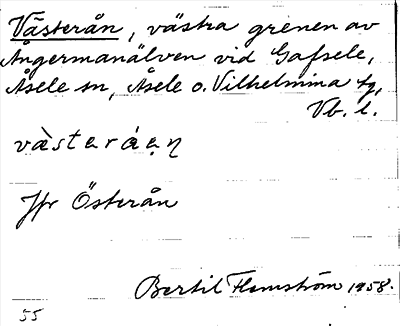 Västerån, västra grenen av
Ångermanälven vid Gafsele,
Åsele sn, Åsele o. Vilhelmina tg,
Vb. l.
Jfr Österån
Bertil Flemström 1958.
55